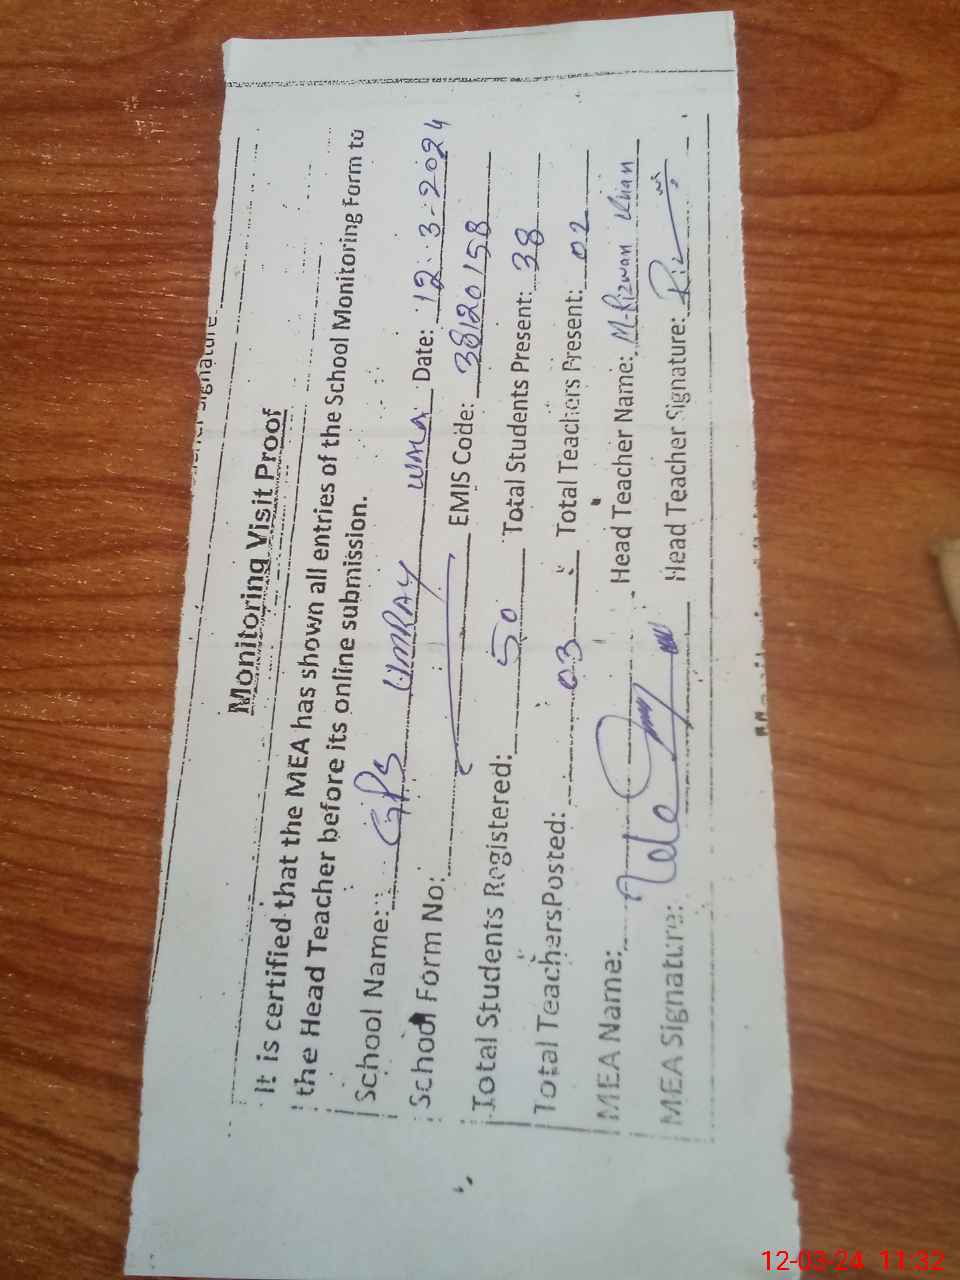 Signature
Monitoring Visit Proof
It is certified that the MEA has shown all entries of the School Monitoring Form to
the Head Teacher before its online submission.
School Name: GPS UMRAY WALA Date: 12-3-2024
School Form No: EMIS Code: 38120158
Total Students Registered: 50 Total Students Present: 38
Total TeachersPosted: 03 Total Teachers Present: 02
MEA Name: Head Teacher Name: M-Rizwan Khan
MEA Signature: Head Teacher Signature: Riz
12-03-24 11:32